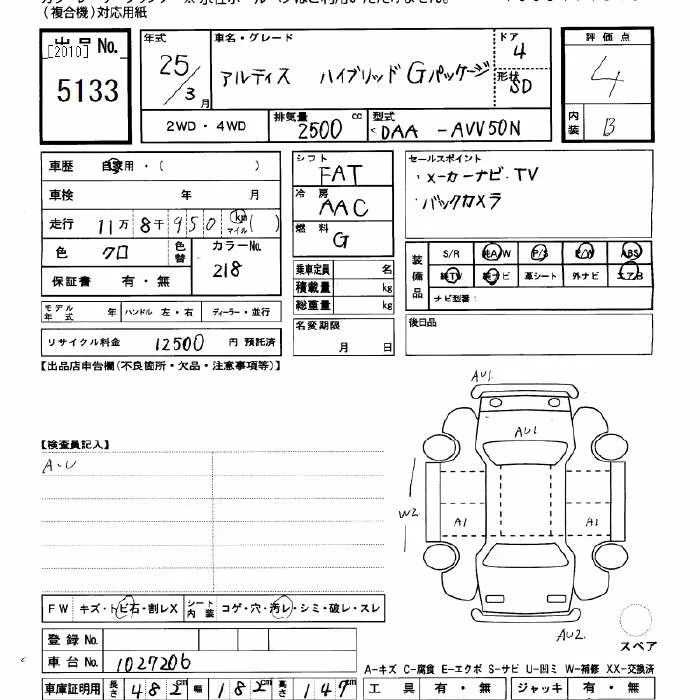 (複合機)対応用紙
出品No.
[2010]
5133
年式
25/3月
車名・グレード
アルティス ハイブリッド Gパッケージ
ドア
4
形状
SD
評価点
4
内装
B
2WD・4WD
排気量
2500 cc
型式
DAA -AVV50N
車歴 自家用・( )
車検 年 月
走行 11万 8千950 km マイル ( )
色 クロ
色替
カラーNo.
218
保証書 有・無
シフト
FAT
冷房
AAC
燃料
G
セールスポイント
・メーカーナビ・TV
・バックカメラ
装備品
S/R 純A/W P/S P/W ABS
純TV 純ナビ 革シート 外ナビ エアB
ナビ型番:
乗車定員 名
積載量 kg
総重量 kg
モデル年式 年 ハンドル 左・右 ディーラー・並行
リサイクル料金 12500 円 預託済
名変期限
月 日
後日品
【出品店申告欄(不良箇所・欠品・注意事項等)】
【検査員記入】
A・U
AU1
AU1
W2
A1
A1
AU2
スペア
FW キズ・トビ石・割レX
シート内装 コゲ・穴・汚レ・シミ・破レ・スレ
登録No.
車台No. 1027206
A−キズ C−腐食 E−エクボ S−サビ U−凹ミ W−補修 XX−交換済
車庫証明用 長さ 482cm 幅 182cm 高さ 147cm
工具 有・無 ジャッキ 有・無